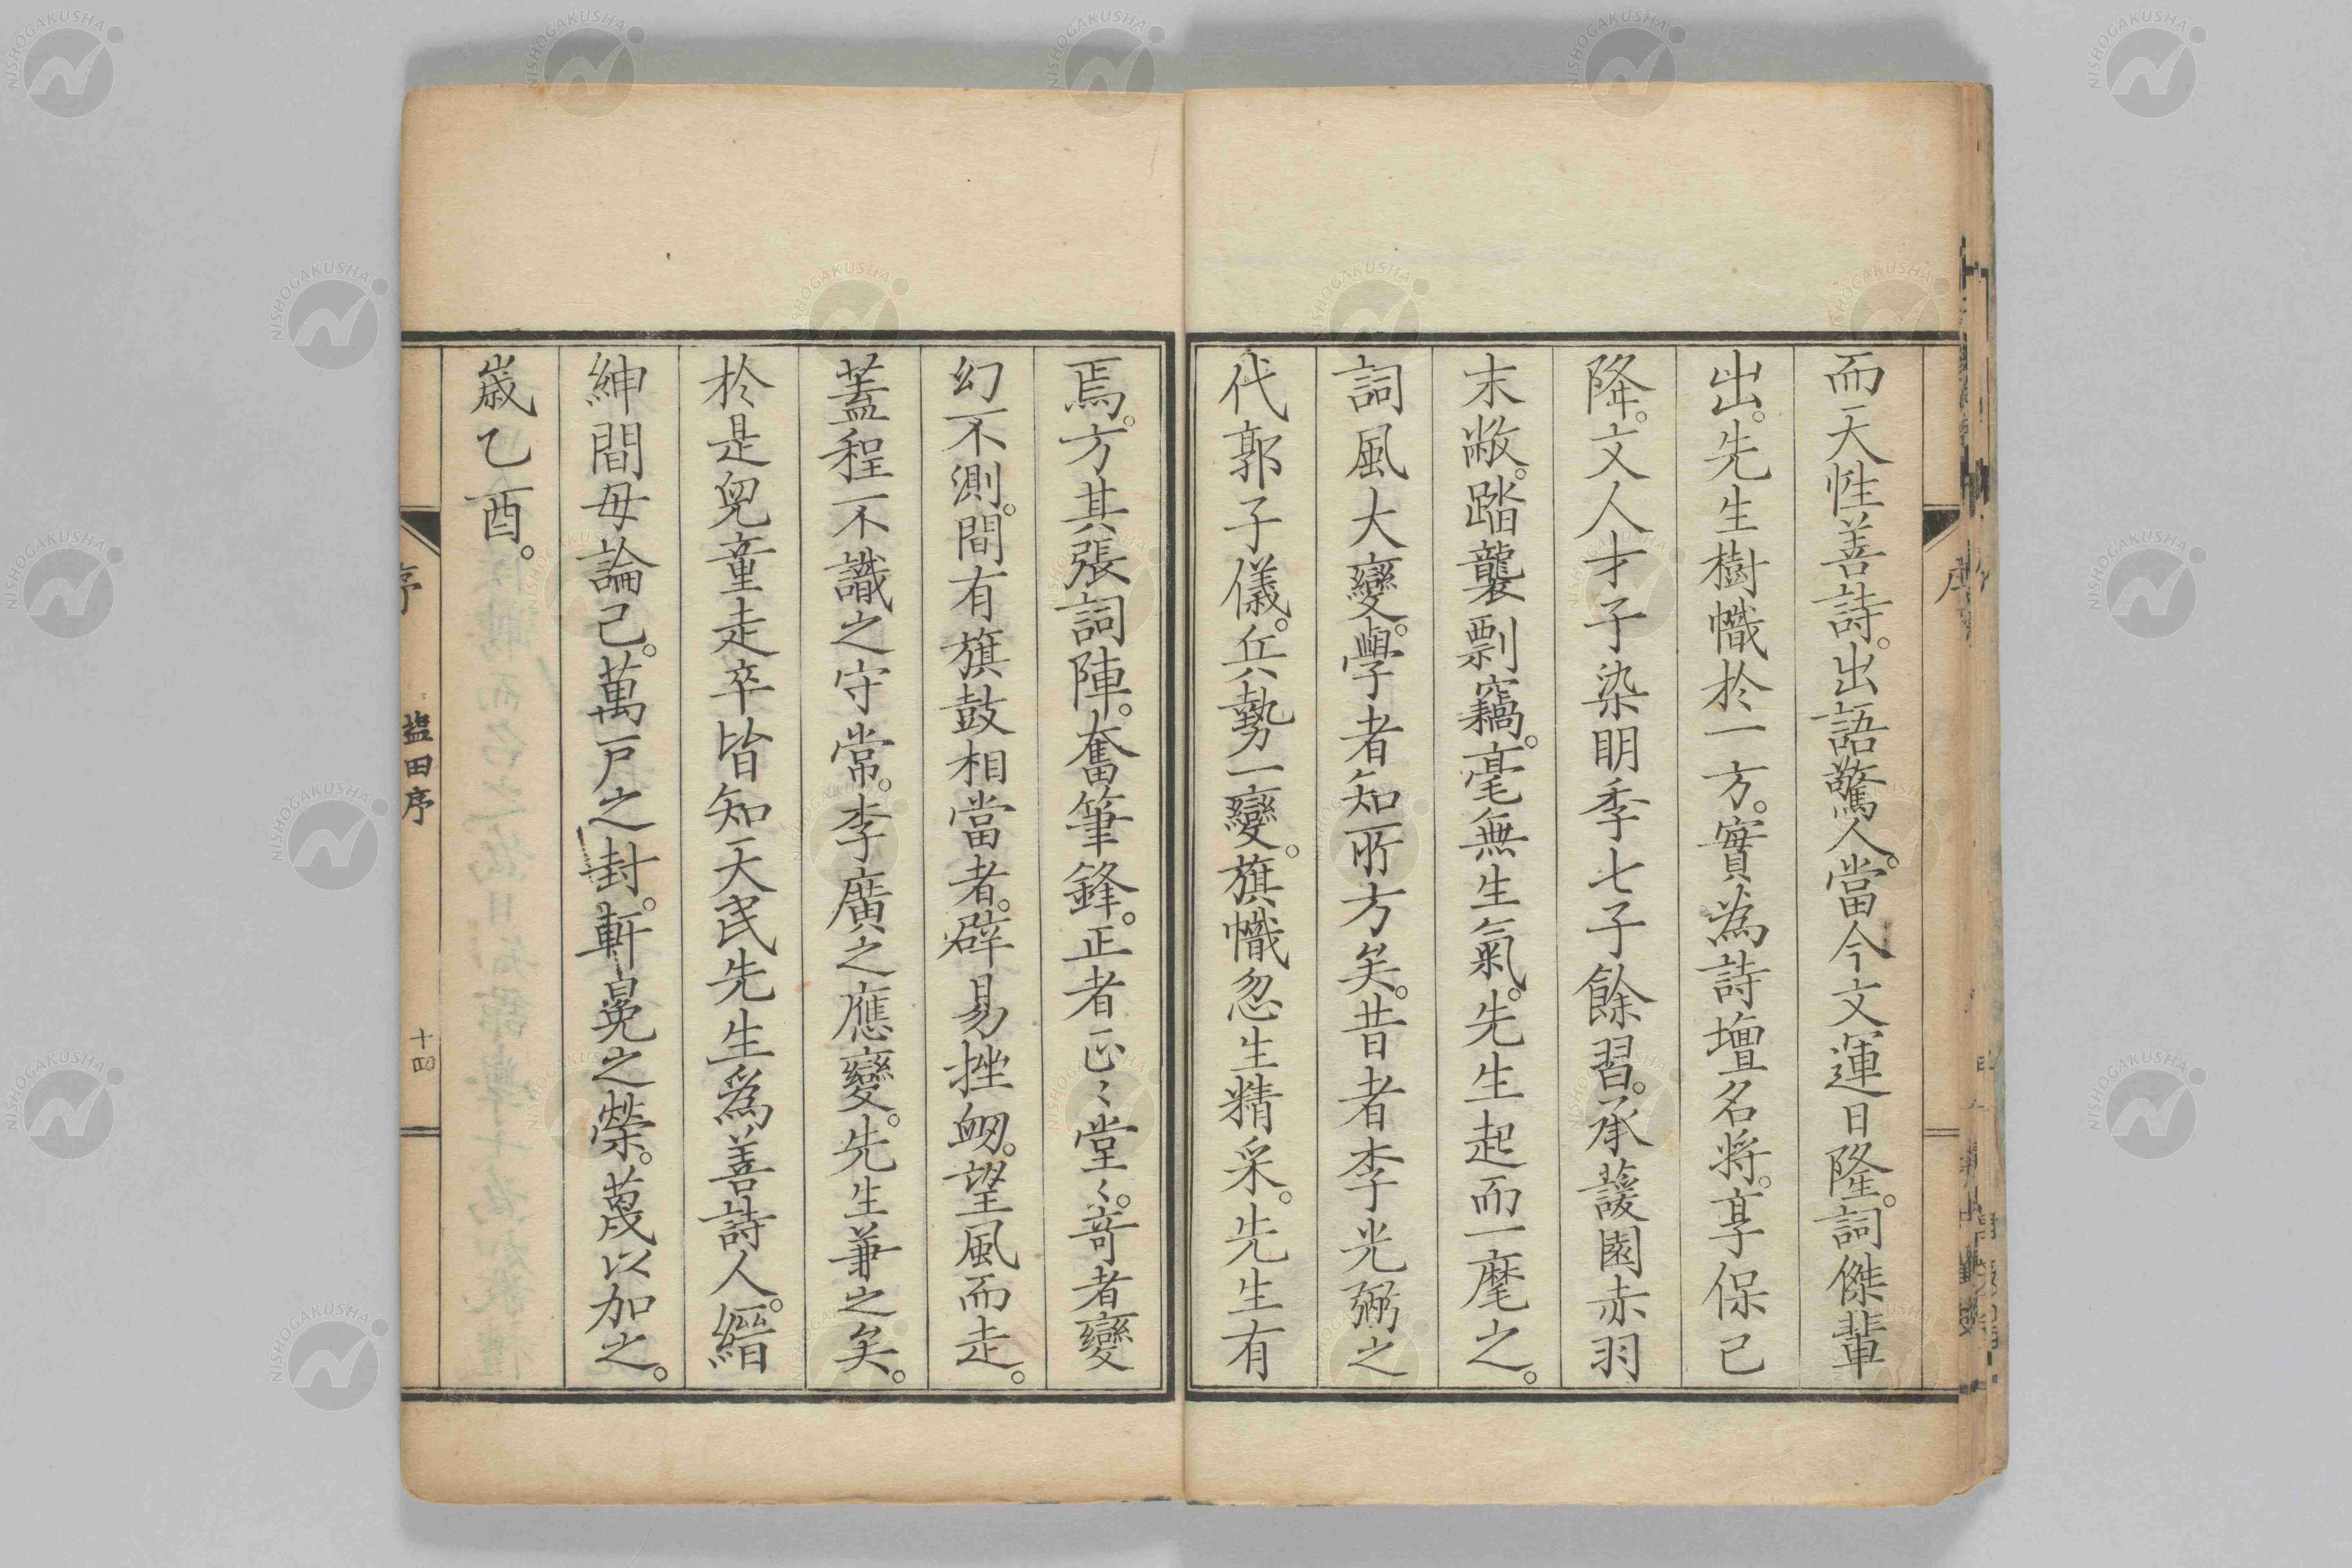 而天性善詩。出語驚人。當今文運日隆。詞傑輩
出。先生樹幟於一方。實為詩壇名将。享保己
降。文人才子染明季七子餘習。承蘐園赤羽
末敝。踏襲剽竊。毫無生氣。先生起而一麾之。
詞風大變。學者知所方矣。昔者李光弼之
代郭子儀。兵勢一變。旗幟忽生精采。先生有
焉。方其張詞陣。奮筆鋒。正者正〻堂〻。奇者變
幻不測。間有旗鼓相當者。辟易挫衂。望風而走。
蓋程不識之守常。李廣之應變。先生兼之矣。
於是兒童走卒皆知天民先生爲善詩人。縉
紳間毋論已。萬戸之封。軒冕之榮。蔑以加之。
歳乙酉。
序
塩田序
十四
NISHOGAKUSHA